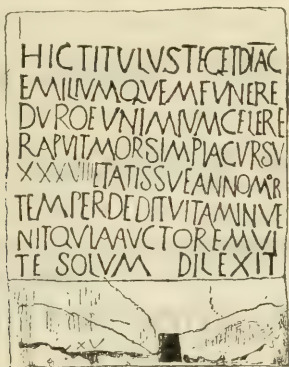 HICTITVLVSTEGETDIAC
EMILIVMQVEMFVNERE
DVROEVNIMIVMCELERE
RAPVITMORSIMPIACVRSV
XXXVIIIIETATISSVEANNOMOR
TEMPERDEDITVITAMINVE
NITQVIAAVCTOREMVI
TE SOLVM DILEXIT
XV